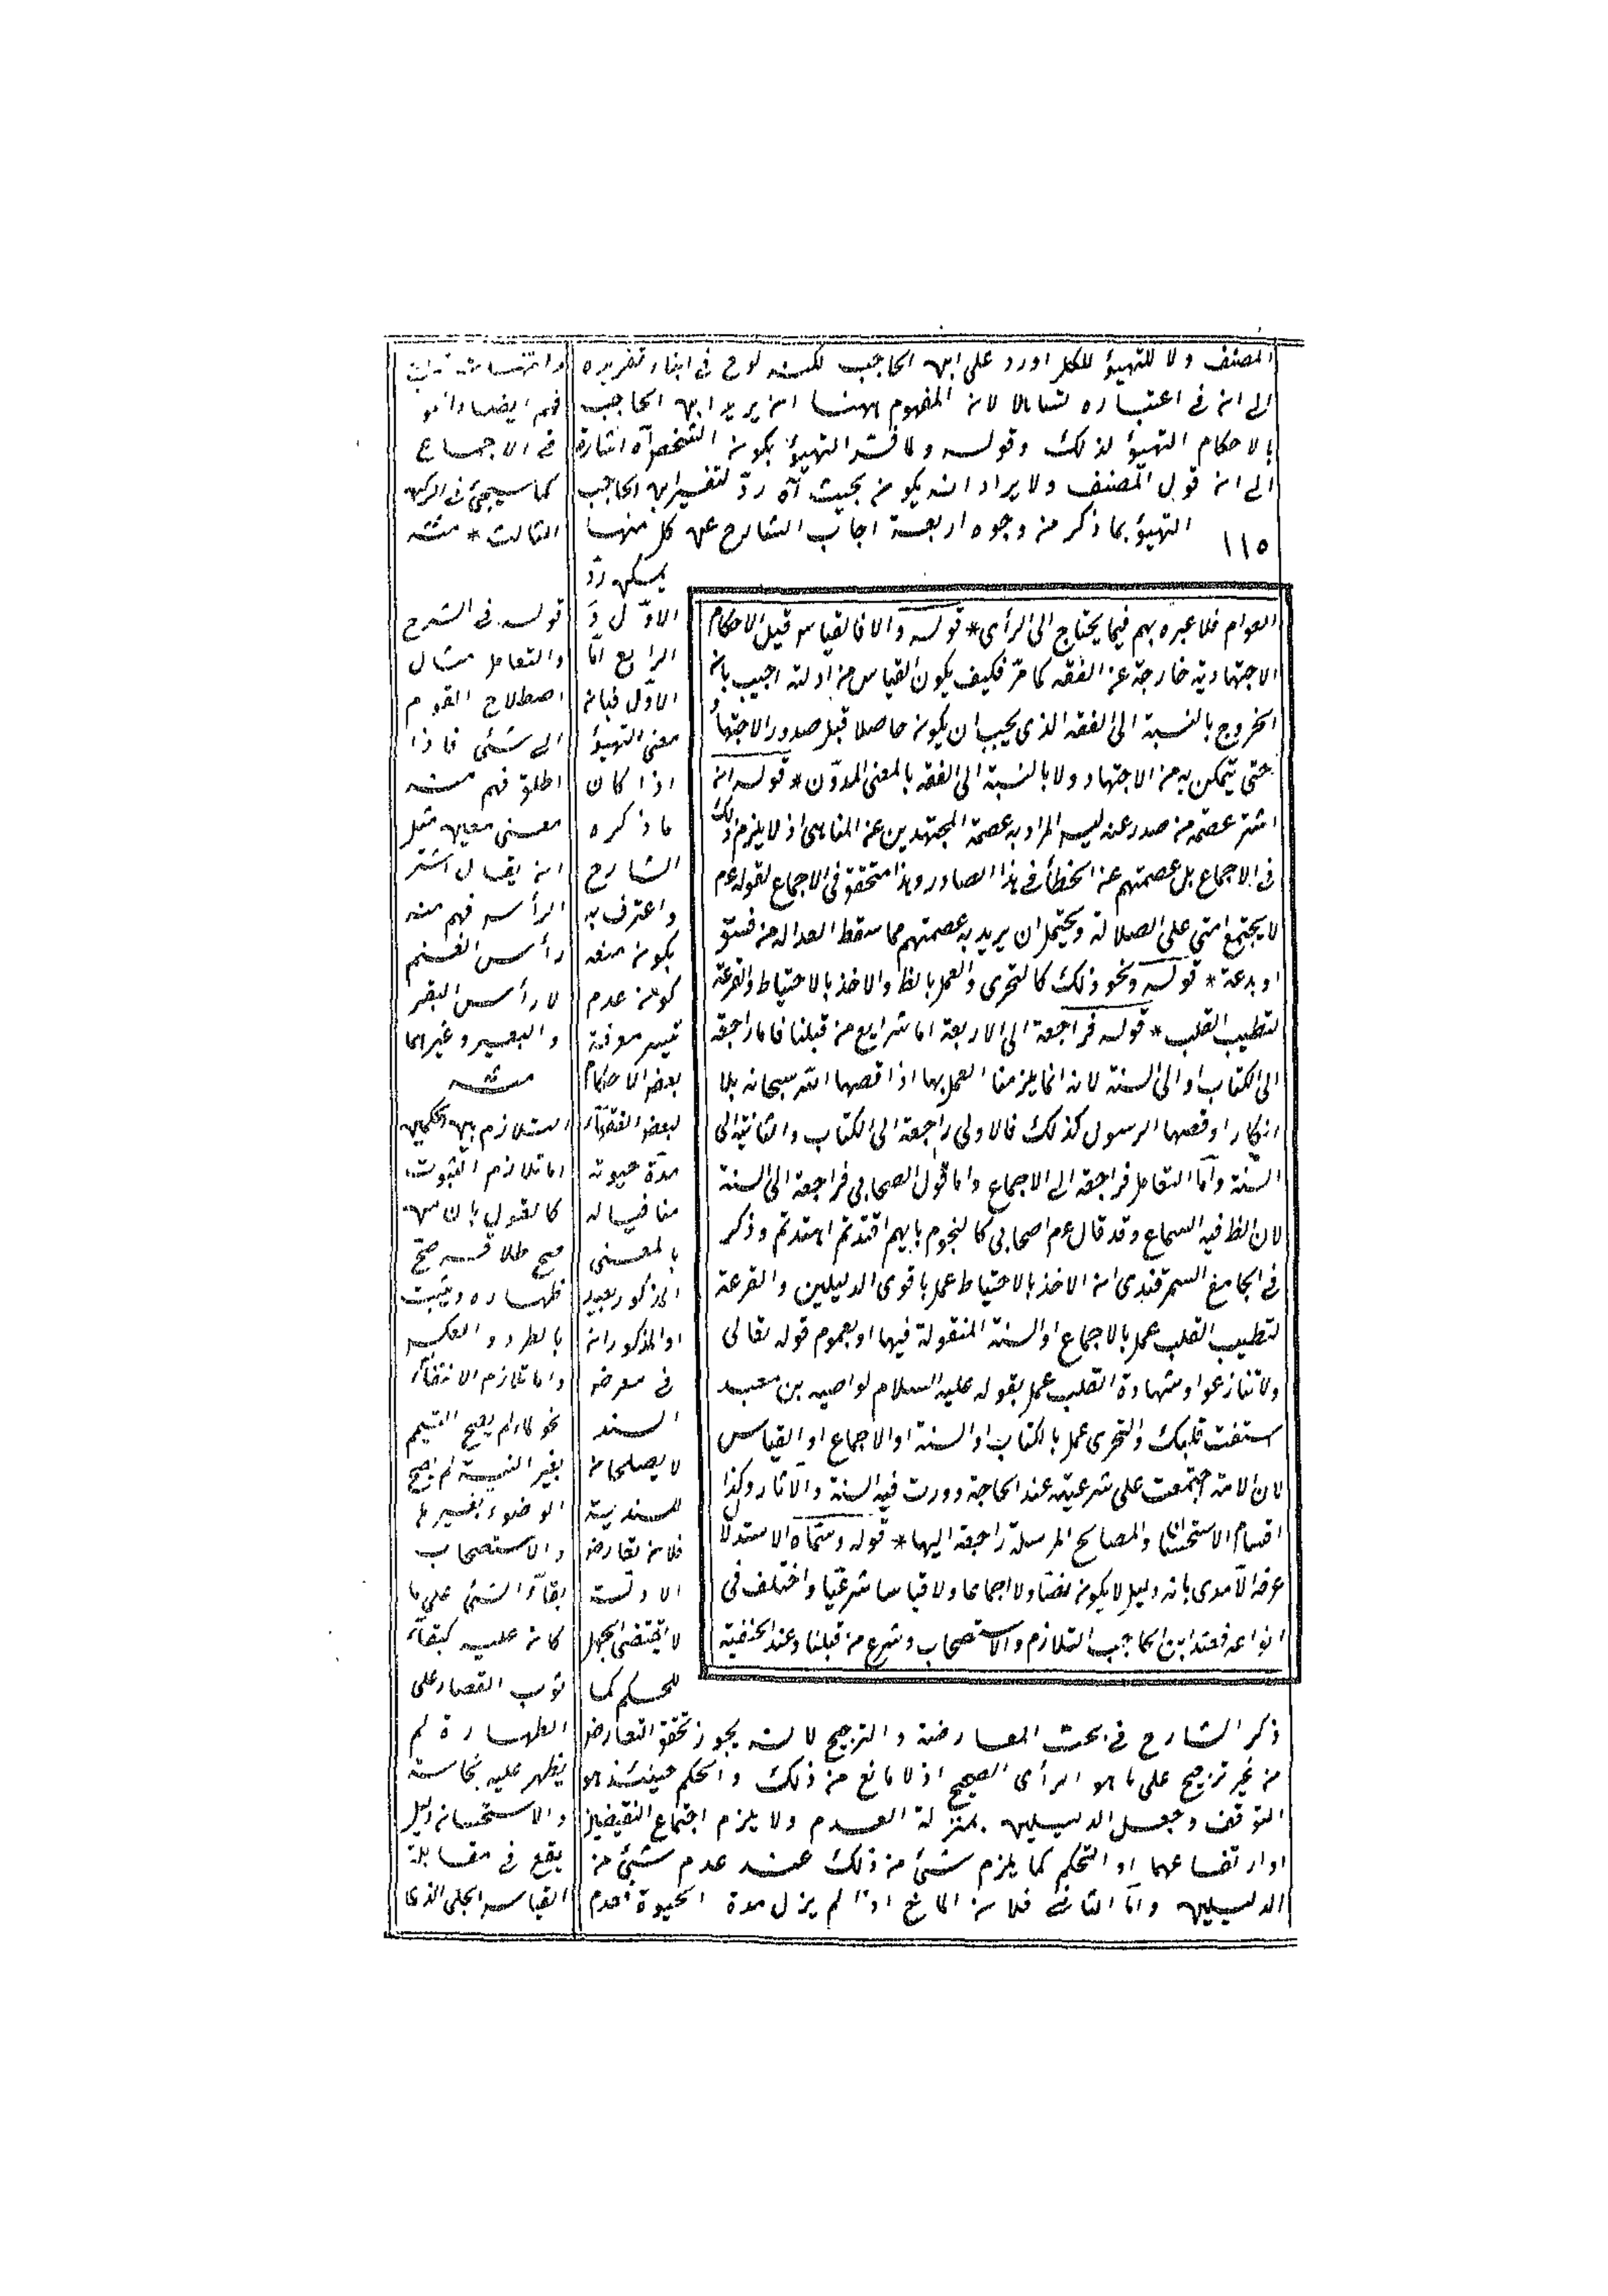 المصنف ولا للتهيؤ للكل اورد على ابن الحاجب لكنه لوح في اثناء تقريره
الى ان في اعتباره تساملا لان المفهوم ههنا ان يريد ابن الحاجب
بالاحكام التهيؤ لذلك وقوله ولا فسّر التهيؤ بكون الشخص آه اشارة
الى ان قول المصنف ولا يراد انه يكون بحيث آه ردّ لتفسير ابن الحاجب
١١٥ التهيؤ بما ذكر من وجوه اربعة اجاب الشارح عن كل منها
يمكن ردّ
الاوّل و
الرابع امّا
الاوّل فبان
معنى التهيؤ
اذا كان
ما ذكره
الشارح
واعترف به
بكونه منعه
كون عدم
تيسر معرفة
بعض الاحكام
لبعض الفقهاء
مدّة حيوته
منافيا له
بالمعنى
المذكور بعيد
او المذكور ان
في معرض
السند
لا يصلحان
للسندية
فلان تعارض
الادلّة
لا يقتضى الجهل
للحكم كما
ذكر الشارح في بحث المعارضة والترجيح لانه يجوز تحقق التعارض
من غير ترجيح على ما هو الرأى الصحيح اذ لا مانع من ذلك والحكم حينئذ هو
التوقف وجعل الدليلين بمنزلة العدم ولا يلزم اجتماع النقيضين
او ارتفاعهما او التحكم كما يلزم شئ من ذلك عند عدم شئ من
الدليلين وامّا الثاني فلان المانع اذا لم يزل مدة الحيوة
العوام فلا عبره بهم فيما يحتاج الى الرأى * قوله والا فالقياس قيل الاحكام
الاجتهادية خارجة عن الفقه كما مرّ فكيف يكون القياس من ادلته اجيب بان
الخروج بالنسبة الى الفقه الذى يجب ان يكون حاصلا قبل صدور الاجتهاد
حتى يتمكن به من الاجتهاد ولا بالنسبة الى الفقه بالمعنى المدوّن * قوله ان
اشتر عصمة من صدر عنه ليس المراد به عصمة المجتهدين عن المعاصى اذ لا يلزم ذلك
في الاجماع بل عصمتهم عن الخطأ في هذا الصادر وهذا متحقق في الاجماع لقوله عم
لا يجتمع امتي على الضلالة ويحتمل ان يريد به عصمتهم مما سقط العدالة من فسق
او بدعة * قوله ونحو ذلك كالتحرى والعمل بالظ والاخذ بالاحتياط والقرعة
لتطيب القلب * قوله فراجعة الى الاربعة اما شرايع من قبلنا فاما راجعة
الى الكتاب او الى السنة لانه انما يلزمنا العمل بها اذا قصها الله سبحانه بلا
انكار او قصها الرسول كذلك فالاولى راجعة الى الكتاب والثانية الى
السنّة وامّا التعامل فراجعة الى الاجماع واما قول الصحابي فراجعة الى السنة
لان الظ فيه السماع وقد قال عم اصحابى كالنجوم بايهم اقتدتم اهتدتم وذكر
في الجامع السمرقندى ان الاخذ بالاحتياط عمل باقوى الدليلين والقرعة
لتطيب القلب عمل بالاجماع او السنة المنقولة فيها او بعموم قوله تعالى
ولا تنازعوا وشهادة القلب عمل بقوله عليه السلام لواصبه بن معبد
استفت قلبك والتحرى عمل بالكتاب او السنة او الاجماع او القياس
لان الامة اجتمعت على شرعيته عند الحاجة وورت فيه السنة والآثار وكذا
اقسام الاستحسان والمصالح المرسلة راجعة اليها * قوله وسمّاه الاستدلال
عرفه الآمدى بانه دليل لا يكون نصّا ولا اجماعا ولا قياسا شرعيّا واختلف فى
انواعه فعند ابن الحاجب التلازم والاستصحاب وشرع من قبلنا وعند الحنفية
فهم ايضا
في الاجماع
كما سيجئ في الركن
الثالث * منه
قوله في الشرح
والتعامل مثال
اصطلاح القوم
الى شئ فاذا
اطلق فهم منه
معنى معين مثل
ان يقال اشتر
الرأس فهم منه
رأس الغنم
لا رأس البقر
والبعير وغيرهما
منه
التلازم بين الحكمين
اما تلازم الثبوت
كالقول بان من
صح طلاقه صحّ
ظهاره ويثبت
بالطرد والعكس
واما تلازم الانتفاء
نحو لم يصح التيمم
بغير النية لم يصح
الوضوء بغيرها
والاستصحاب
بقاء الشئ على ما
كان عليه كبقاء
ثوب القصار على
الطهارة لم
يظهر عليه نجاسة
والاستحسان دليل
يقع في مقابلة
القياس الجلى الذى